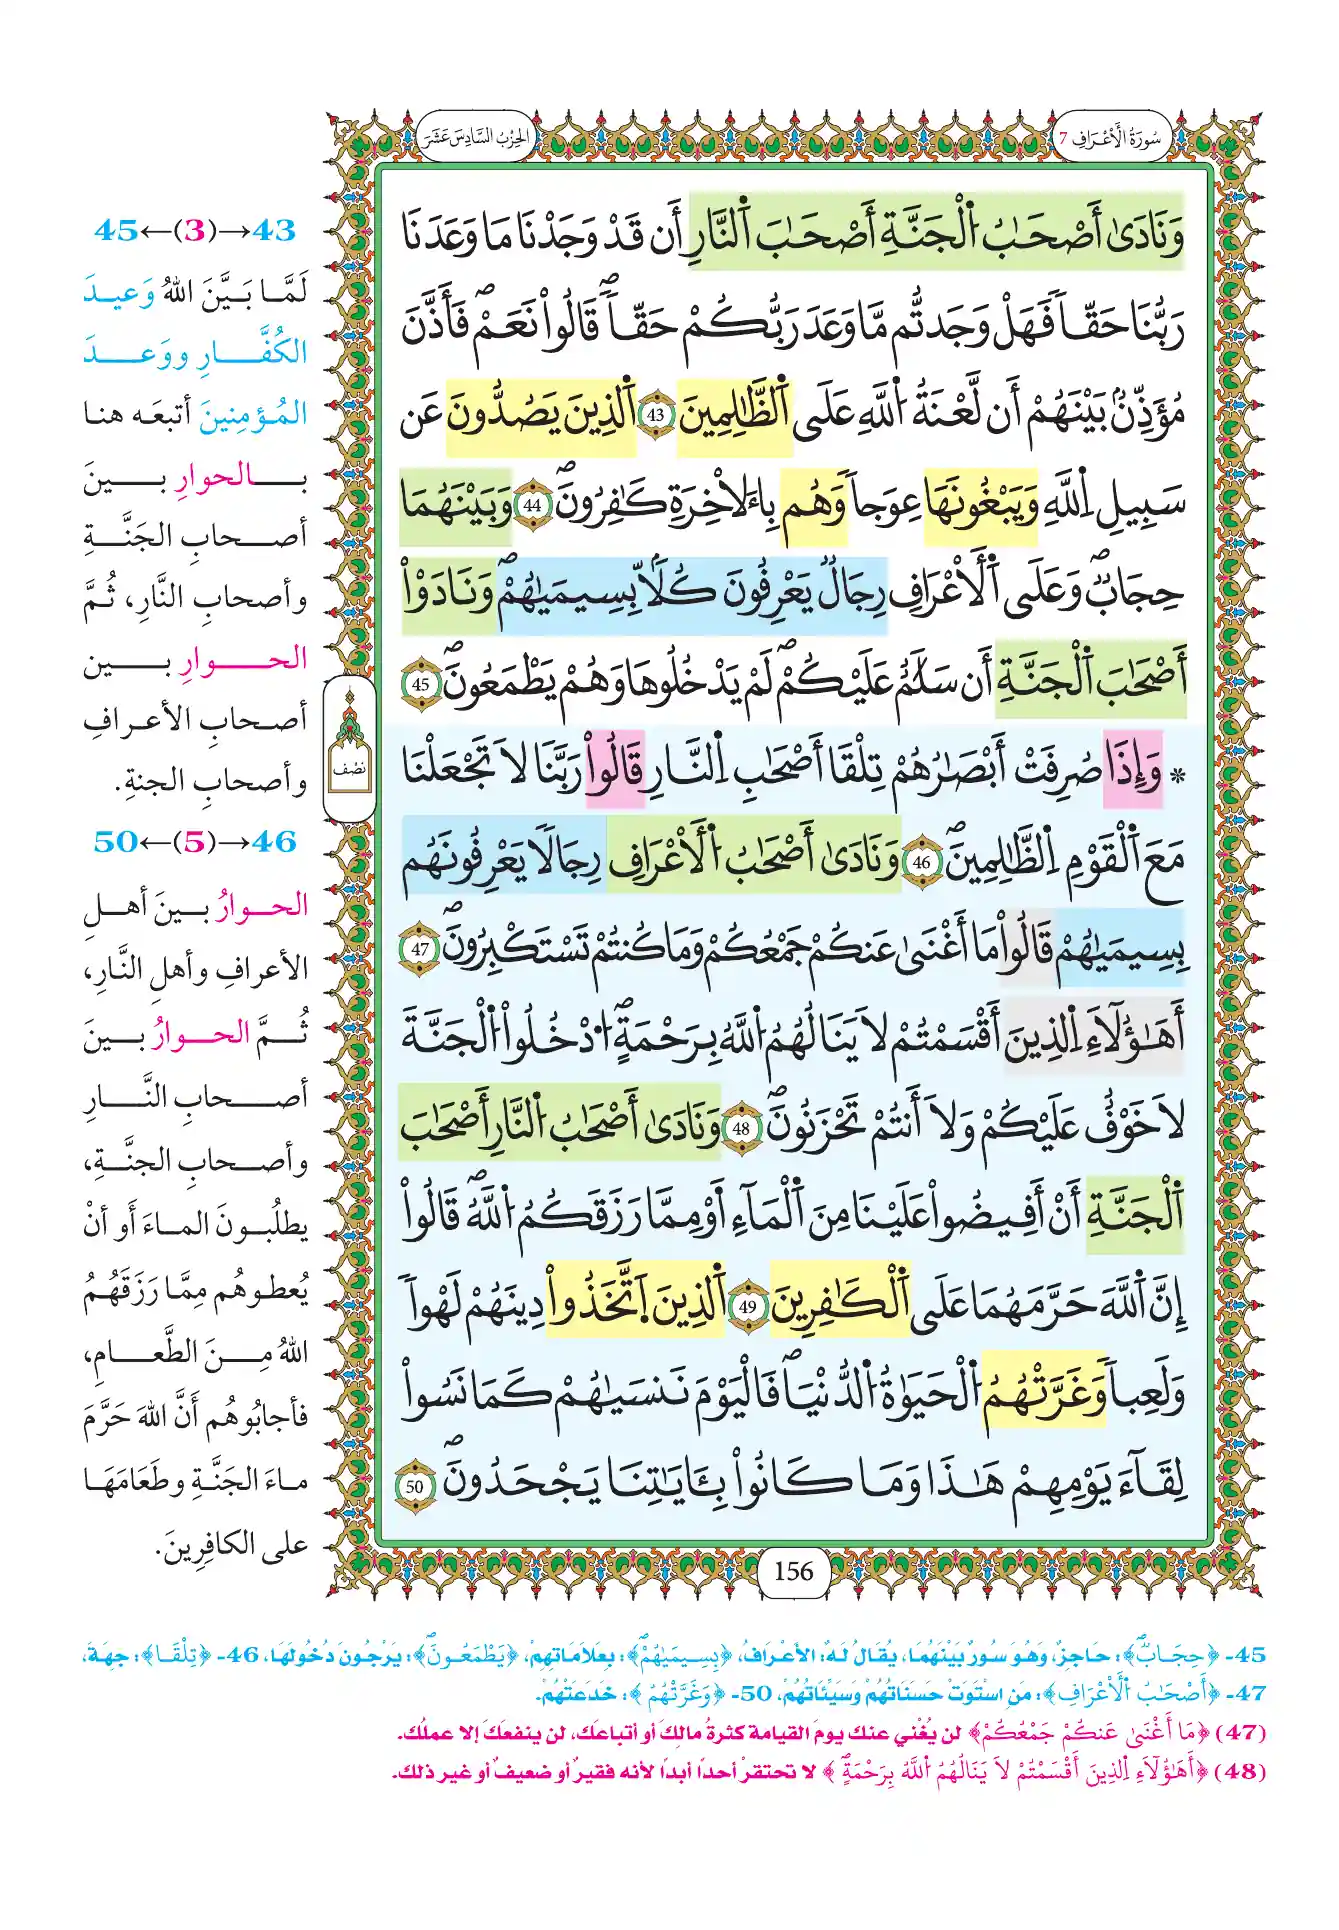 سُورَةُ الْأَعْرَافِ 7
الحِزْبُ السَّادِسَ عَشَرَ
وَنَادَىٰ أَصْحَٰبُ اُ۬لْجَنَّةِ أَصْحَٰبَ اَ۬لنَّارِ أَن قَدْ وَجَدْنَا مَا وَعَدَنَا
رَبُّنَا حَقّاٗ فَهَلْ وَجَدتُّم مَّا وَعَدَ رَبُّكُمْ حَقّاٗۖ قَالُواْ نَعَمْۖ فَأَذَّنَ
مُؤَذِّنُۢ بَيْنَهُمْ أَن لَّعْنَةُ اُ۬للَّهِ عَلَى اَ۬لظَّٰلِمِينَ 43 اَ۬لذِينَ يَصُدُّونَ عَن
سَبِيلِ اِ۬للَّهِ وَيَبْغُونَهَا عِوَجاٗ وَهُم بِالَاخِرَةِ كَٰفِرُونَۖ 44 وَبَيْنَهُمَا
حِجَابٞۖ وَعَلَى اَ۬لَاعْرَافِ رِجَالٞ يَعْرِفُونَ كُلّاَۢ بِسِيمَيٰهُمْۖ وَنَادَوْاْ
أَصْحَٰبَ اَ۬لْجَنَّةِ أَن سَلَٰمٌ عَلَيْكُمْۖ لَمْ يَدْخُلُوهَا وَهُمْ يَطْمَعُونَۖ 45
* وَإِذَا صُرِفَتْ أَبْصَٰرُهُمْ تِلْقَا أَصْحَٰبِ اِ۬لنَّارِ قَالُواْ رَبَّنَا لَا تَجْعَلْنَا
مَعَ اَ۬لْقَوْمِ اِ۬لظَّٰلِمِينَۖ 46 وَنَادَىٰ أَصْحَٰبُ اُ۬لَاعْرَافِ رِجَالاٗ يَعْرِفُونَهُم
بِسِيمَيٰهُمْ قَالُواْ مَا أَغْنَىٰ عَنكُمْ جَمْعُكُمْ وَمَا كُنتُمْ تَسْتَكْبِرُونَۖ 47
أَهَٰؤُلَآءِ اِ۬لذِينَ أَقْسَمْتُمْ لَا يَنَالُهُمُ اُ۬للَّهُ بِرَحْمَةٍۖ اُ۟دْخُلُواْ اُ۬لْجَنَّةَ
لَا خَوْفٌ عَلَيْكُمْ وَلَا أَنتُمْ تَحْزَنُونَۖ 48 وَنَادَىٰ أَصْحَٰبُ اُ۬لنَّارِ أَصْحَٰبَ
اَ۬لْجَنَّةِ أَنْ أَفِيضُواْ عَلَيْنَا مِنَ اَ۬لْمَآءِ اَوْ مِمَّا رَزَقَكُمُ اُ۬للَّهُۖ قَالُواْ
إِنَّ اَ۬للَّهَ حَرَّمَهُمَا عَلَى اَ۬لْكَٰفِرِينَ 49 اَ۬لذِينَ اَ۪تَّخَذُواْ دِينَهُمْ لَهْواٗ
وَلَعِباٗ وَغَرَّتْهُمُ اُ۬لْحَيَوٰةُ اُ۬لدُّنْيَاۖ فَالْيَوْمَ نَنسَيٰهُمْ كَمَا نَسُواْ
لِقَآءَ يَوْمِهِمْ هَٰذَا وَمَا كَانُواْ بِـَٔايَٰتِنَا يَجْحَدُونَۖ 50
156
نصْف
43→(3)←45
لَمَّا بَيَّنَ اللهُ وَعيدَ
الكُفَّارِ ووَعدَ
المُؤمِنينَ أتبعَه هنا
بالحوارِ بينَ
أصحابِ الجَنَّةِ
وأصحابِ النَّارِ، ثُمَّ
الحوارِ بين
أصحابِ الأعرافِ
وأصحابِ الجنةِ.
46→(5)←50
الحوارُ بينَ أهلِ
الأعرافِ وأهلِ النَّارِ،
ثُمَّ الحوارُ بينَ
أصحابِ النَّارِ
وأصحابِ الجنَّةِ،
يطلُبونَ الماءَ أو أنْ
يُعطوهُم مِمَّا رَزَقَهُمُ
اللهُ مِنَ الطَّعامِ،
فأجابُوهُم أنَّ اللهَ حَرَّمَ
ماءَ الجَنَّةِ وطَعَامَهَا
على الكافِرِينَ.
45- ﴿حِجَابٞۖ﴾: حَاجِزٌ، وَهُوَ سُورٌ بَيْنَهُمَا، يُقَالُ لَهُ: الأَعْرَافُ، ﴿بِسِيمَيٰهُمْۖ﴾: بِعَلَامَاتِهِمْ، ﴿يَطْمَعُونَۖ﴾: يَرْجُونَ دُخُولَهَا، 46- ﴿تِلْقَا﴾: جِهَةَ،
47- ﴿أَصْحَٰبُ اُ۬لَاعْرَافِ﴾: مَنِ اسْتَوَتْ حَسَنَاتُهُمْ وَسَيِّئَاتُهُمْ، 50- ﴿وَغَرَّتْهُمُ﴾: خَدَعَتْهُمْ.
(47) ﴿مَا أَغْنَىٰ عَنكُمْ جَمْعُكُمْ﴾ لن يُغْني عنك يومَ القيامة كثرةُ مالِكَ أو أتباعَك، لن ينفعكَ إلا عملُك.
(48) ﴿أَهَٰؤُلَآءِ اِ۬لذِينَ أَقْسَمْتُمْ لَا يَنَالُهُمُ اُ۬للَّهُ بِرَحْمَةٍۖ﴾ لا تحتقرْ أحدًا أبدًا لأنه فقيرٌ أو ضعيفٌ أو غير ذلك.